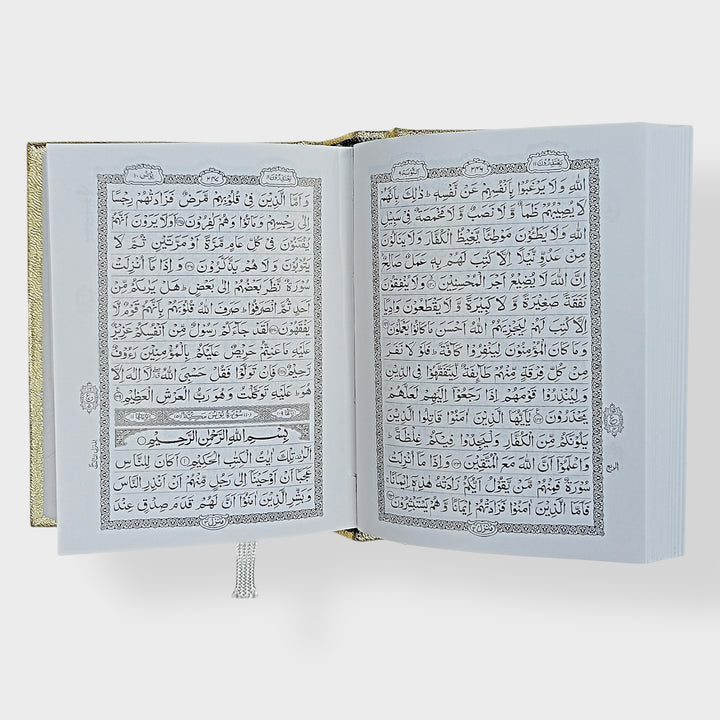 يَعْتَذِرُوْنَ ١١
التَّوْبَة ٩
اللهِ وَلَا يَرْغَبُوْا بِاَنْفُسِهِمْ عَنْ نَّفْسِهٖ ؕ ذٰلِكَ بِاَنَّهُمْ
لَا يُصِيْبُهُمْ ظَمَاٌ وَّلَا نَصَبٌ وَّلَا مَخْمَصَةٌ فِيْ سَبِيْلِ
اللهِ وَلَا يَطَئُوْنَ مَوْطِئًا يَّغِيْظُ الْكُفَّارَ وَلَا يَنَالُوْنَ
مِنْ عَدُوٍّ نَّيْلًا اِلَّا كُتِبَ لَهُمْ بِهٖ عَمَلٌ صَالِحٌ ؕ
اِنَّ اللهَ لَا يُضِيْعُ اَجْرَ الْمُحْسِنِيْنَ ۙ وَلَا يُنْفِقُوْنَ
نَفَقَةً صَغِيْرَةً وَّلَا كَبِيْرَةً وَّلَا يَقْطَعُوْنَ وَادِيًا
اِلَّا كُتِبَ لَهُمْ لِيَجْزِيَهُمُ اللهُ اَحْسَنَ مَا كَانُوْا يَعْمَلُوْنَ
وَمَا كَانَ الْمُؤْمِنُوْنَ لِيَنْفِرُوْا كَآفَّةً ؕ فَلَوْلَا نَفَرَ
مِنْ كُلِّ فِرْقَةٍ مِّنْهُمْ طَآئِفَةٌ لِّيَتَفَقَّهُوْا فِي الدِّيْنِ
وَلِيُنْذِرُوْا قَوْمَهُمْ اِذَا رَجَعُوْٓا اِلَيْهِمْ لَعَلَّهُمْ
يَحْذَرُوْنَ يٰٓاَيُّهَا الَّذِيْنَ اٰمَنُوْا قَاتِلُوا الَّذِيْنَ
يَلُوْنَكُمْ مِّنَ الْكُفَّارِ وَلْيَجِدُوْا فِيْكُمْ غِلْظَةً ؕ
وَاعْلَمُوْٓا اَنَّ اللهَ مَعَ الْمُتَّقِيْنَ وَاِذَا مَآ اُنْزِلَتْ
سُوْرَةٌ فَمِنْهُمْ مَّنْ يَّقُوْلُ اَيُّكُمْ زَادَتْهُ هٰذِهٖٓ اِيْمَانًا ۚ
فَاَمَّا الَّذِيْنَ اٰمَنُوْا فَزَادَتْهُمْ اِيْمَانًا وَّهُمْ يَسْتَبْشِرُوْنَ
الربع
منزل ٢
يَعْتَذِرُوْنَ ١١
يُوْنُس ١٠
وَاَمَّا الَّذِيْنَ فِيْ قُلُوْبِهِمْ مَّرَضٌ فَزَادَتْهُمْ رِجْسًا
اِلٰى رِجْسِهِمْ وَمَاتُوْا وَهُمْ كٰفِرُوْنَ اَوَلَا يَرَوْنَ اَنَّهُمْ
يُفْتَنُوْنَ فِيْ كُلِّ عَامٍ مَّرَّةً اَوْ مَرَّتَيْنِ ثُمَّ لَا
يَتُوْبُوْنَ وَلَا هُمْ يَذَّكَّرُوْنَ وَاِذَا مَآ اُنْزِلَتْ
سُوْرَةٌ نَّظَرَ بَعْضُهُمْ اِلٰى بَعْضٍ ؕ هَلْ يَرٰىكُمْ مِّنْ
اَحَدٍ ثُمَّ انْصَرَفُوْا ؕ صَرَفَ اللهُ قُلُوْبَهُمْ بِاَنَّهُمْ قَوْمٌ لَّا
يَفْقَهُوْنَ لَقَدْ جَآءَكُمْ رَسُوْلٌ مِّنْ اَنْفُسِكُمْ عَزِيْزٌ
عَلَيْهِ مَا عَنِتُّمْ حَرِيْصٌ عَلَيْكُمْ بِالْمُؤْمِنِيْنَ رَءُوْفٌ
رَّحِيْمٌ فَاِنْ تَوَلَّوْا فَقُلْ حَسْبِيَ اللهُ لَآ اِلٰهَ اِلَّا
هُوَ ؕ عَلَيْهِ تَوَكَّلْتُ وَهُوَ رَبُّ الْعَرْشِ الْعَظِيْمِ
سُوْرَةُ يُوْنُسَ مَكِّيَّةٌ
بِسْمِ اللهِ الرَّحْمٰنِ الرَّحِيْمِ
الٓرٰ تِلْكَ اٰيٰتُ الْكِتٰبِ الْحَكِيْمِ اَكَانَ لِلنَّاسِ
عَجَبًا اَنْ اَوْحَيْنَآ اِلٰى رَجُلٍ مِّنْهُمْ اَنْ اَنْذِرِ النَّاسَ
وَبَشِّرِ الَّذِيْنَ اٰمَنُوْٓا اَنَّ لَهُمْ قَدَمَ صِدْقٍ عِنْدَ